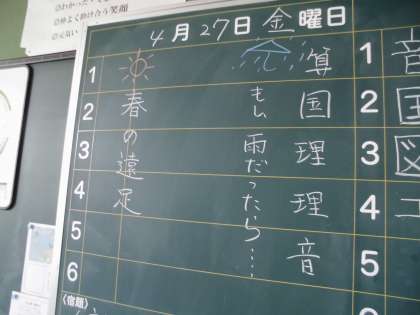 仲よく助け合う笑顔
4月27日金曜日
1
2
3
4
5
6
春の遠足
もし雨だったら…
算
国
理
理
音
1 音
2 国
3 図
4
5
〈宿題〉